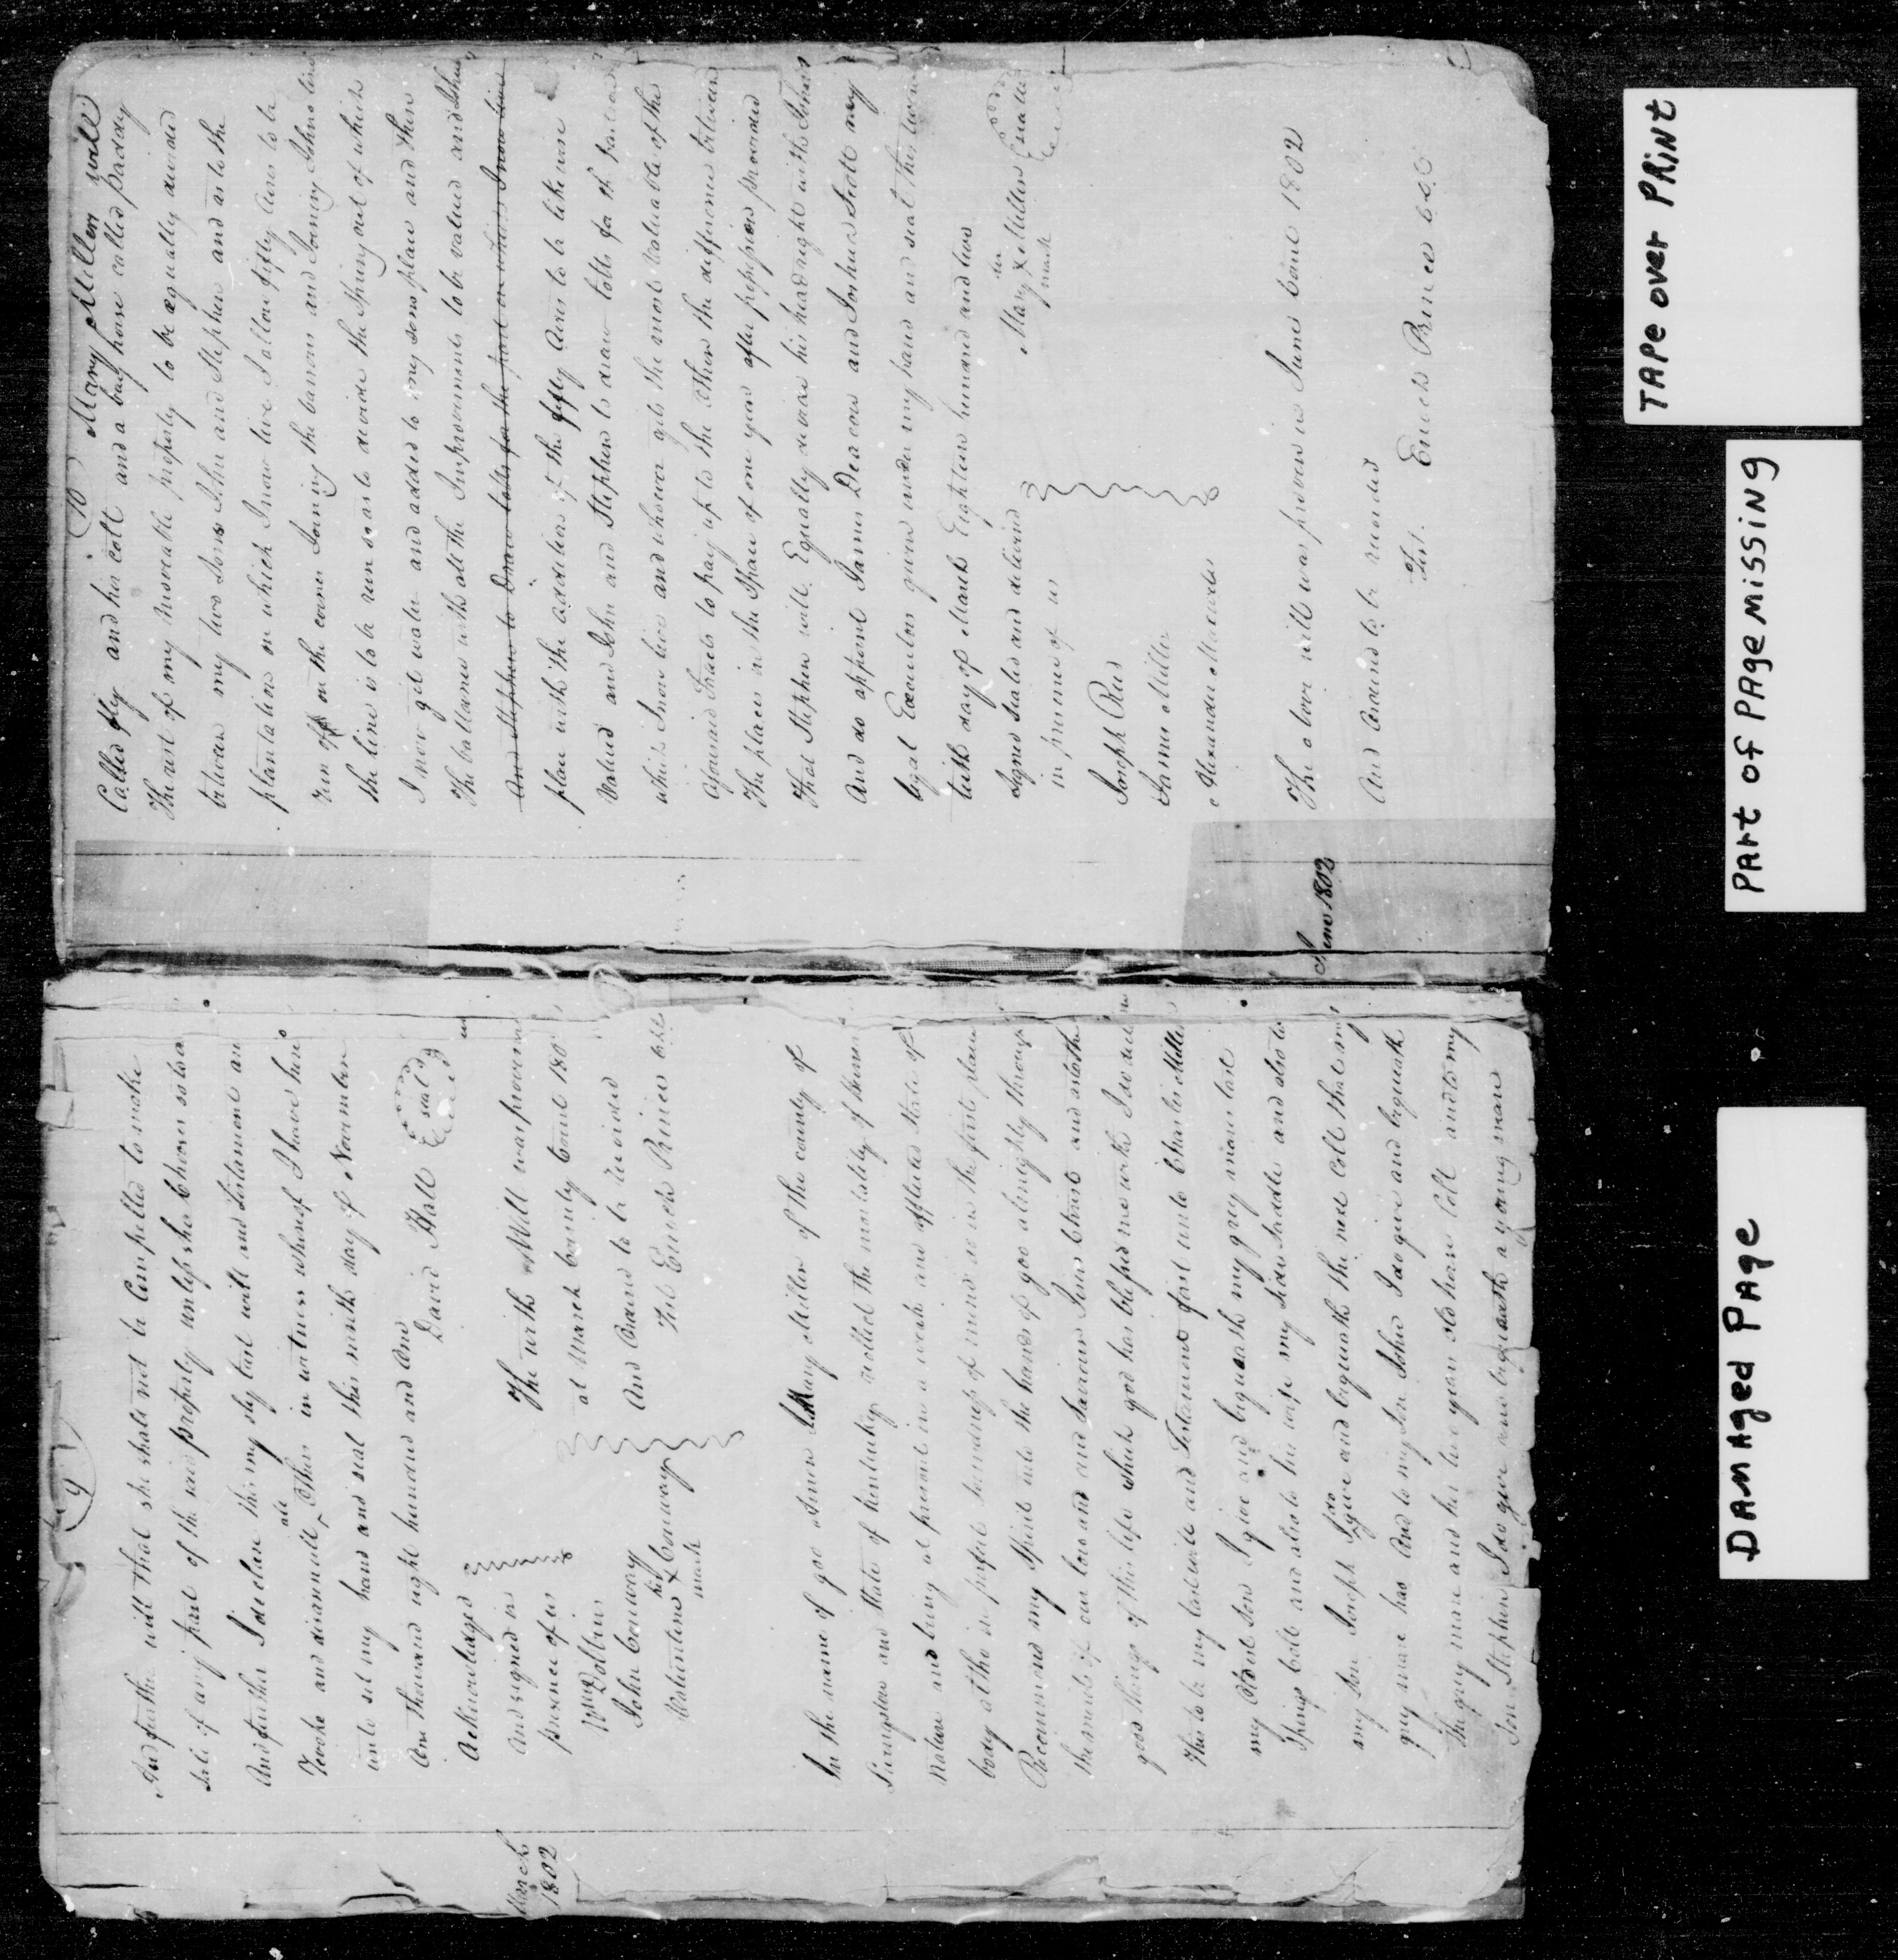 9
And further will that she shall not be Compelled to make
sale of any part of the said property unless she Chuses so to do
And further I declare this my sly last will and Testament an
revoke and disannull all Others in witness whereof I have here
unto set my hand and seal this ninth day of November
One Thousand eight hundred and One
David Hall seal
Acknowledged
And signed in
presence of us
Wm Dollins
John Conway
his
Valuntine X Conway
mark
March
1802
The with Will was proven
at March County Court 180
And Orderd to be Recorded
Test Enoch Prince
In the name of god Amen I Mary Miller of the county of
Livingston and State of Kentucky recollect the mortality of human
Nature and being at present in a weak and afflicted state of
body altho in perfect soundness of mind do in the first place
Reccommend my Spirit into the hands of god almighty through
the merits of our lord and and Saviour Jesus Christ and as to the
good things of this life which god has blessed me with I do declare
this to be my last will and Testament first unto Charles Miller
my Oldest Son I give and bequeath my grey mares last
Springs Colt and also to his wife my Side Saddle and also to
my Son Joseph I do give and bequeath the next Colt that my
grey mare has And to my Son John I do give and bequeath
the grey mare and her two years old horse Colt and to my
Son Stephen I do give and bequeath a young mare
10 Mary Miller will
Called fly and her colt and a bay horse called paddy
The rest of my moveable property to be equally divided
between my two Sons John and Stephen and as to the
plantation on which I now live I allow fifty Acres to be
run off on the corner Joining the barrens and Joining Johns line
the line is to be run so as to devide the Spring out of which
I now get water and added to my sons place and then
The ballance with all the Improvements to be valued and John
And Stephen to Draw lotts for the part on which I now live
place with the addition of the fifty Acres to be likewise
Valued and John and Stephen to draw lotts for the
which I now live and whoever gets the most Valuable of the
aforesaid tracts to pay up to the other the difference between
The places in the Space of one year after possession provided
That Stephen will Equally devide his headright with Johns
And do appoint James Deacon and Joshua Scott my
legal Executors given under my hand and seal this twen
tieth day of March Eighteen hundred and two
Signed Sealed and delivered
in presence of us
her
Mary X Miller seal
mark
Joseph Rud
James Miller
Alexander
June 1802
The above will was proven in June Court 1802
And Orderd to be recorded
Test. Enoch Prince
TAPE OVER PRINT
PART OF PAGE MISSING
DAMAGED PAGE